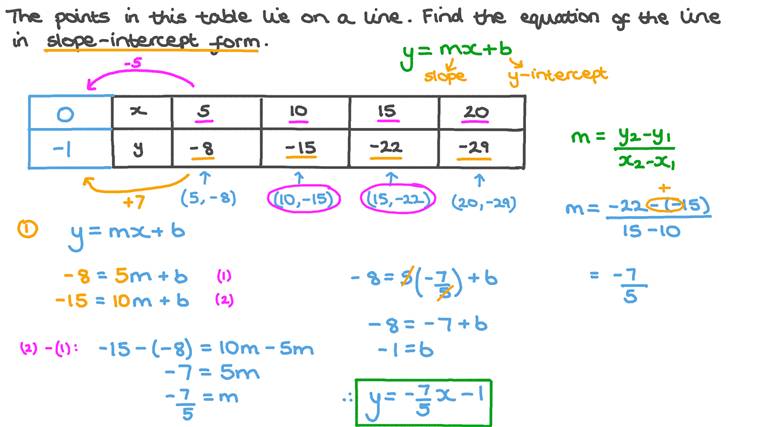 The points in this table lie on a line. Find the equation of the line
in slope-intercept form.
y = mx + b
slope
y-intercept
-5
0 x 5 10 15 20
-1 y -8 -15 -22 -29
+7
(5, -8) (10, -15) (15, -22) (20, -29)
m = y₂ - y₁ / x₂ - x₁
+
m = -22 - (-15) / 15 - 10
= -7/5
① y = mx + b
-8 = 5m + b (1)
-15 = 10m + b (2)
(2) - (1): -15 - (-8) = 10m - 5m
-7 = 5m
-7/5 = m
-8 = 5(-7/5) + b
-8 = -7 + b
-1 = b
∴ y = -7/5 x - 1